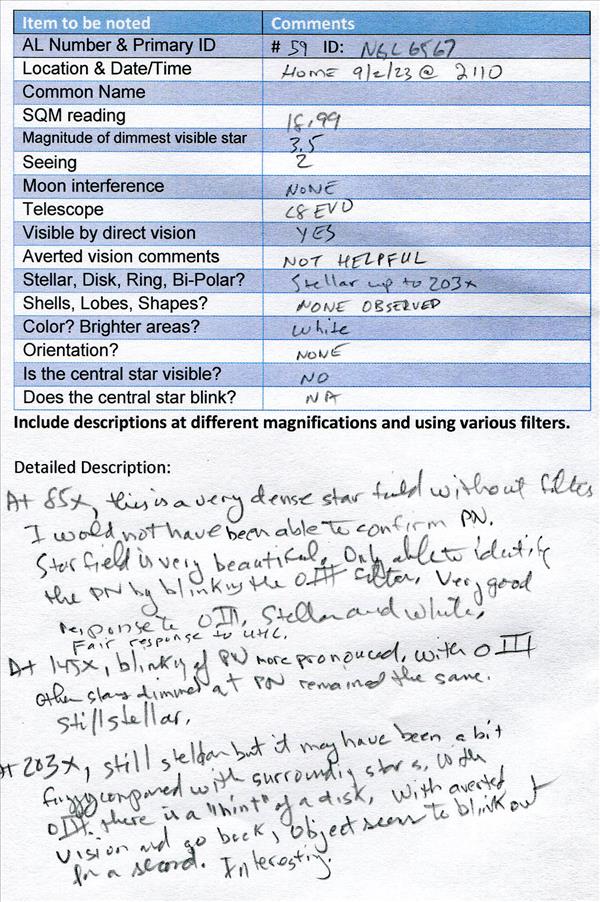 Item to be noted Comments
AL Number & Primary ID # 59 ID: NGC 6567
Location & Date/Time HOME 9/2/23 @ 2110
Common Name
SQM reading 18.99
Magnitude of dimmest visible star 3.5
Seeing 2
Moon interference NONE
Telescope C8 EVO
Visible by direct vision YES
Averted vision comments NOT HELPFUL
Stellar, Disk, Ring, Bi-Polar? Stellar up to 203x
Shells, Lobes, Shapes? NONE OBSERVED
Color? Brighter areas? White
Orientation? NONE
Is the central star visible? NO
Does the central star blink? NA
Include descriptions at different magnifications and using various filters.
Detailed Description:
At 85x, this is a very dense star field without filter
I would not have been able to confirm PN.
Star field is very beautiful. Only able to identify
the PN by blinking the OIII filter. Very good
response to OIII. Stellar and white.
Fair response to UHC.
At 145x, blinking of PN more pronouced, with OIII
other stars dimmed at PN remained the same.
still stellar.
At 203x, still but it may have been a bit
fuzzy compared with surrounding stars. With
OIII there is a "hint" of a disk. With averted
vision and go back, object seem to blink out
for a second. Interesting.